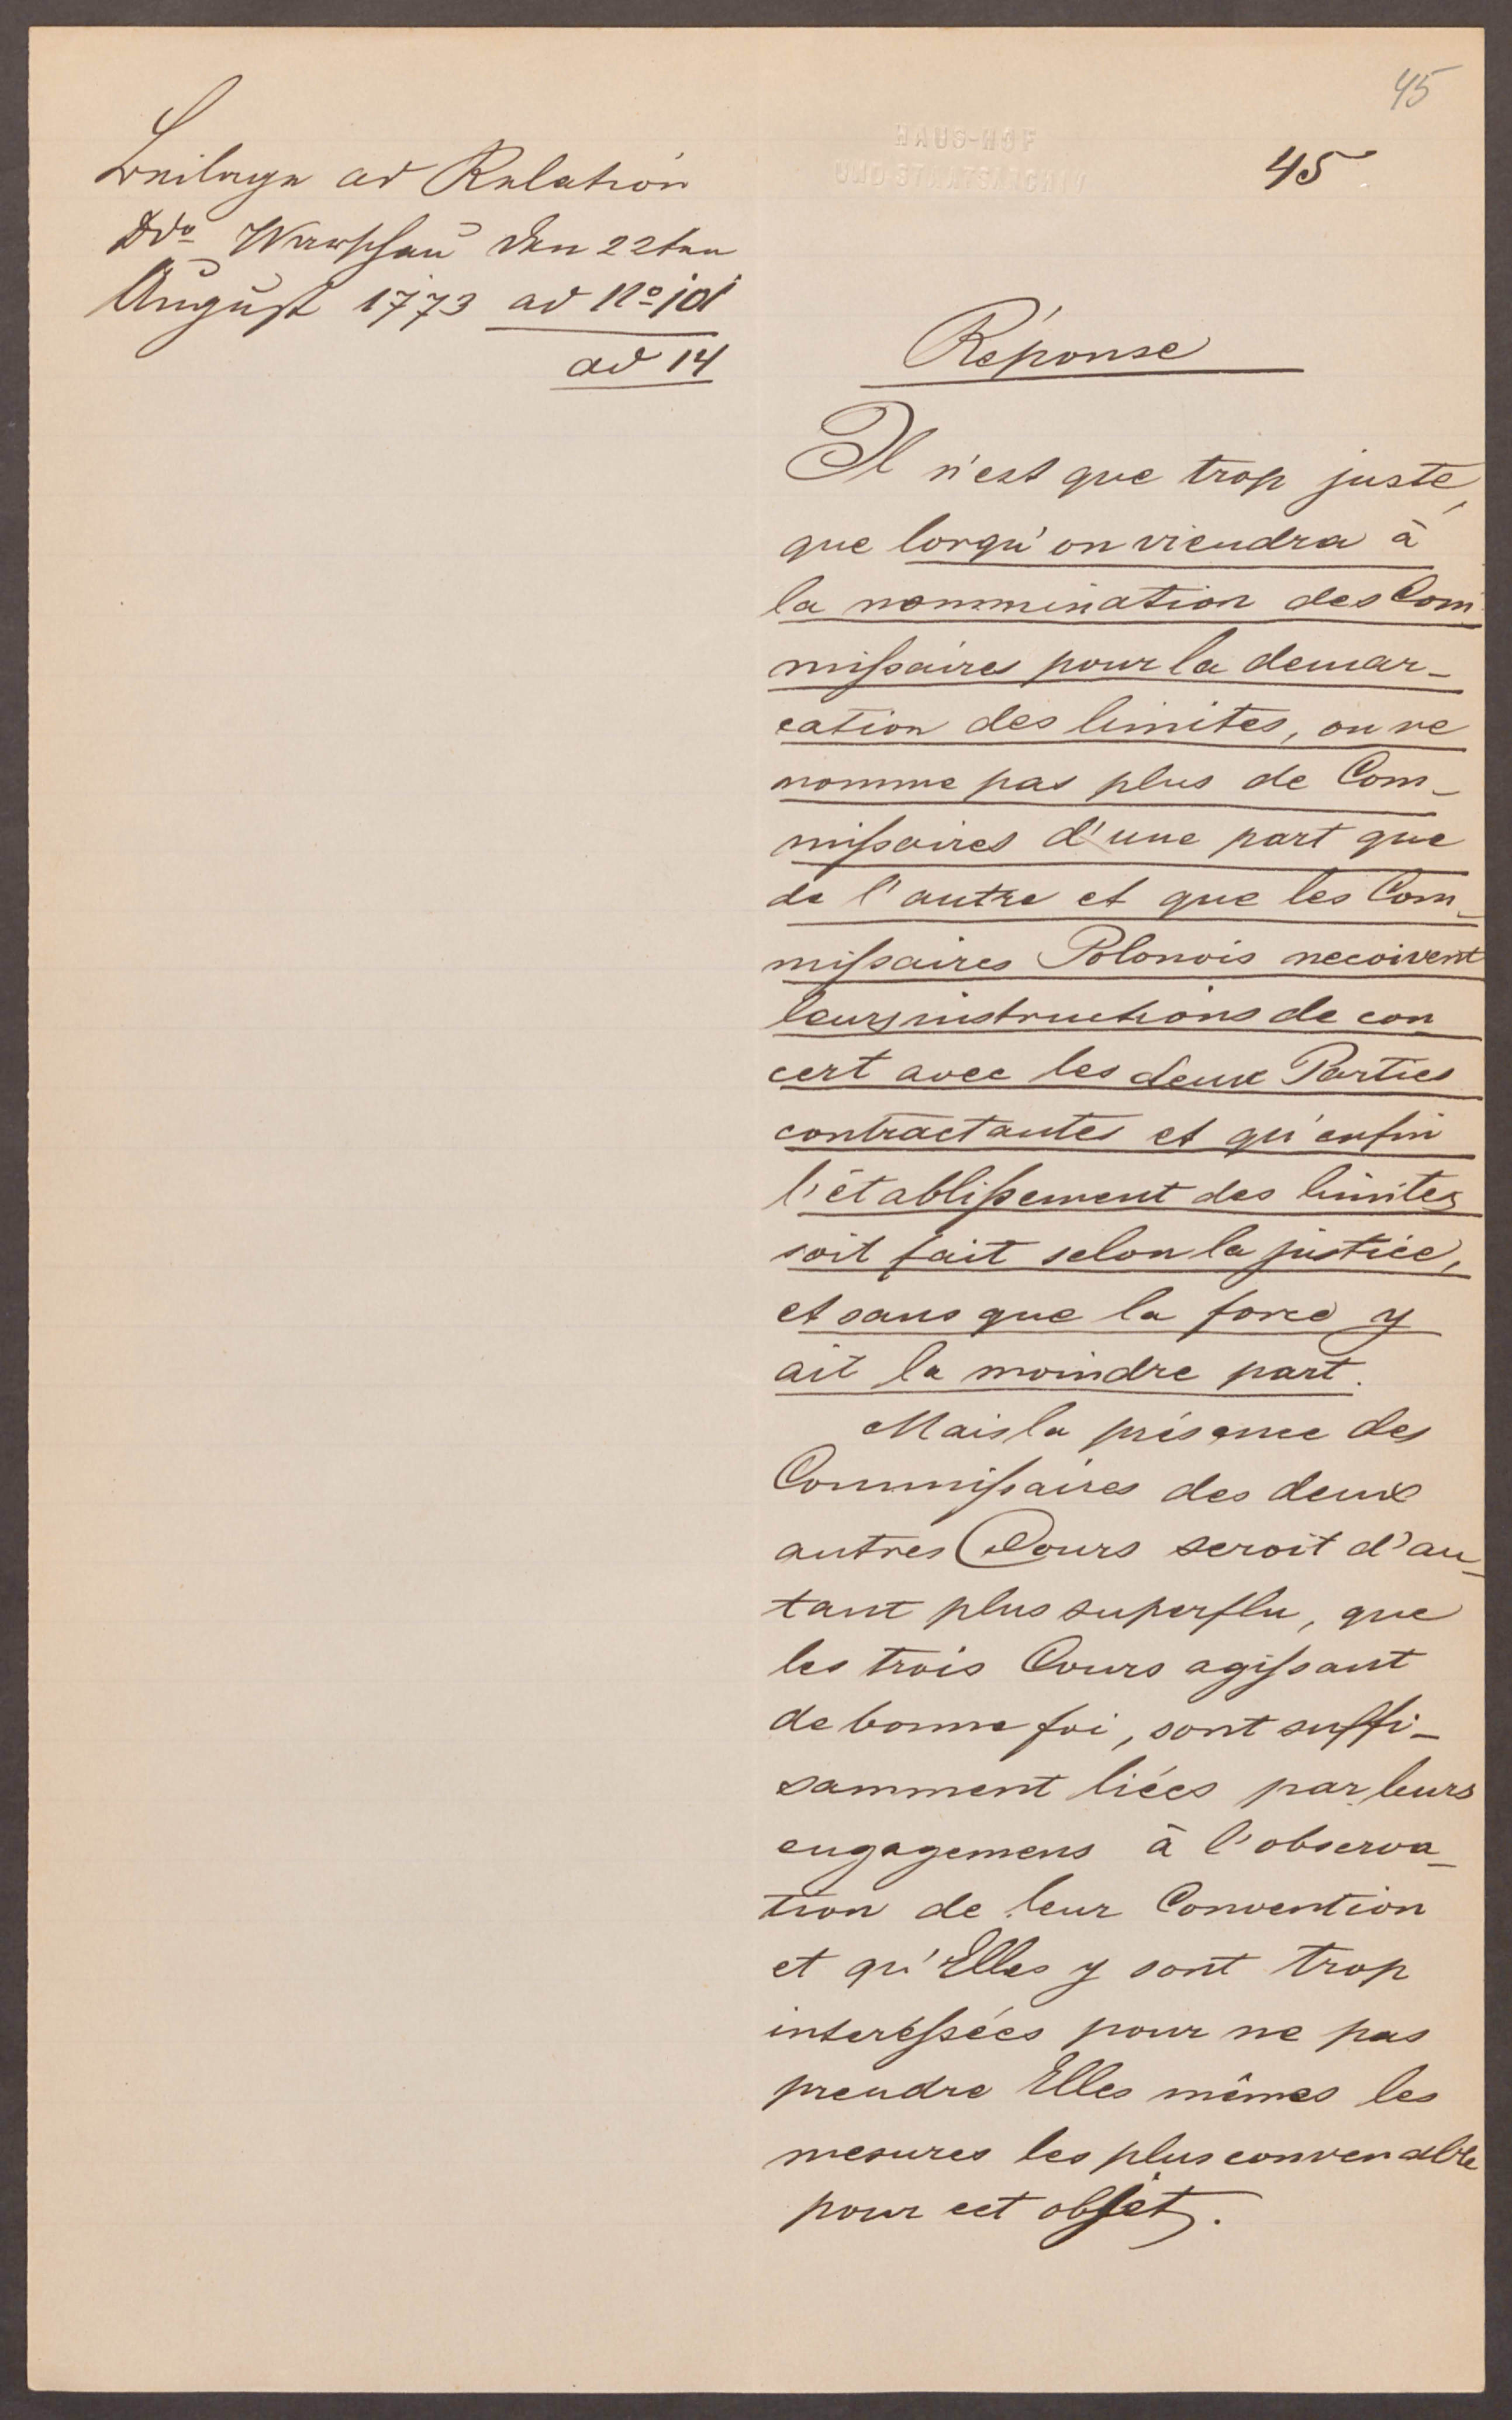 45
45
Beilage ad Relation
ddo Warschau den 22ten
August 1773 ad No
ad 14
HAUS-HOF
UND STAATSARCHIV
Réponse
Il n'est que trop juste,
que lorqu'on viendra à
la nommination des Com
mißaires pour la demar-
cation des limites, on ne
nomme pas plus de Com-
mißaires d'une part que
de l'autre et que les Com-
mißaires Polonois recoivent
leurs instructions de con
cert avec les deux Parties
contractantes et qu'enfin
l'établißement des limites
soit fait selon la justice,
et sans que la force y
ait la moindre part.
Mais la présence des
Commißaires des deux
autres Cours seroit d'au-
tant plus superflu, que
les trois Cours agißant
de bonne foi, sont suffi-
samment liées par leurs
engagemens à l'observa-
tion de leur Convention
et qu'Elles y sont trop
intereßées pour ne pas
prendre Elles mêmes les
mesures les plus convenable
pour cet objet.